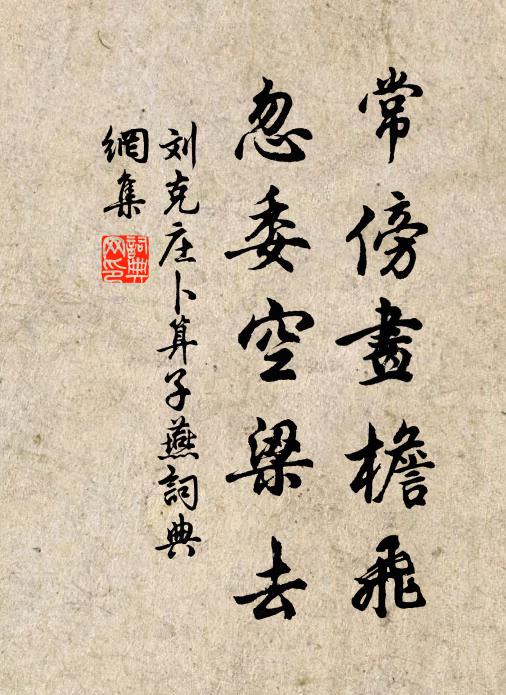 常傍畫檐飛
忽委空梁去
刘克庄卜算子燕詞典
網集
詞典
网印